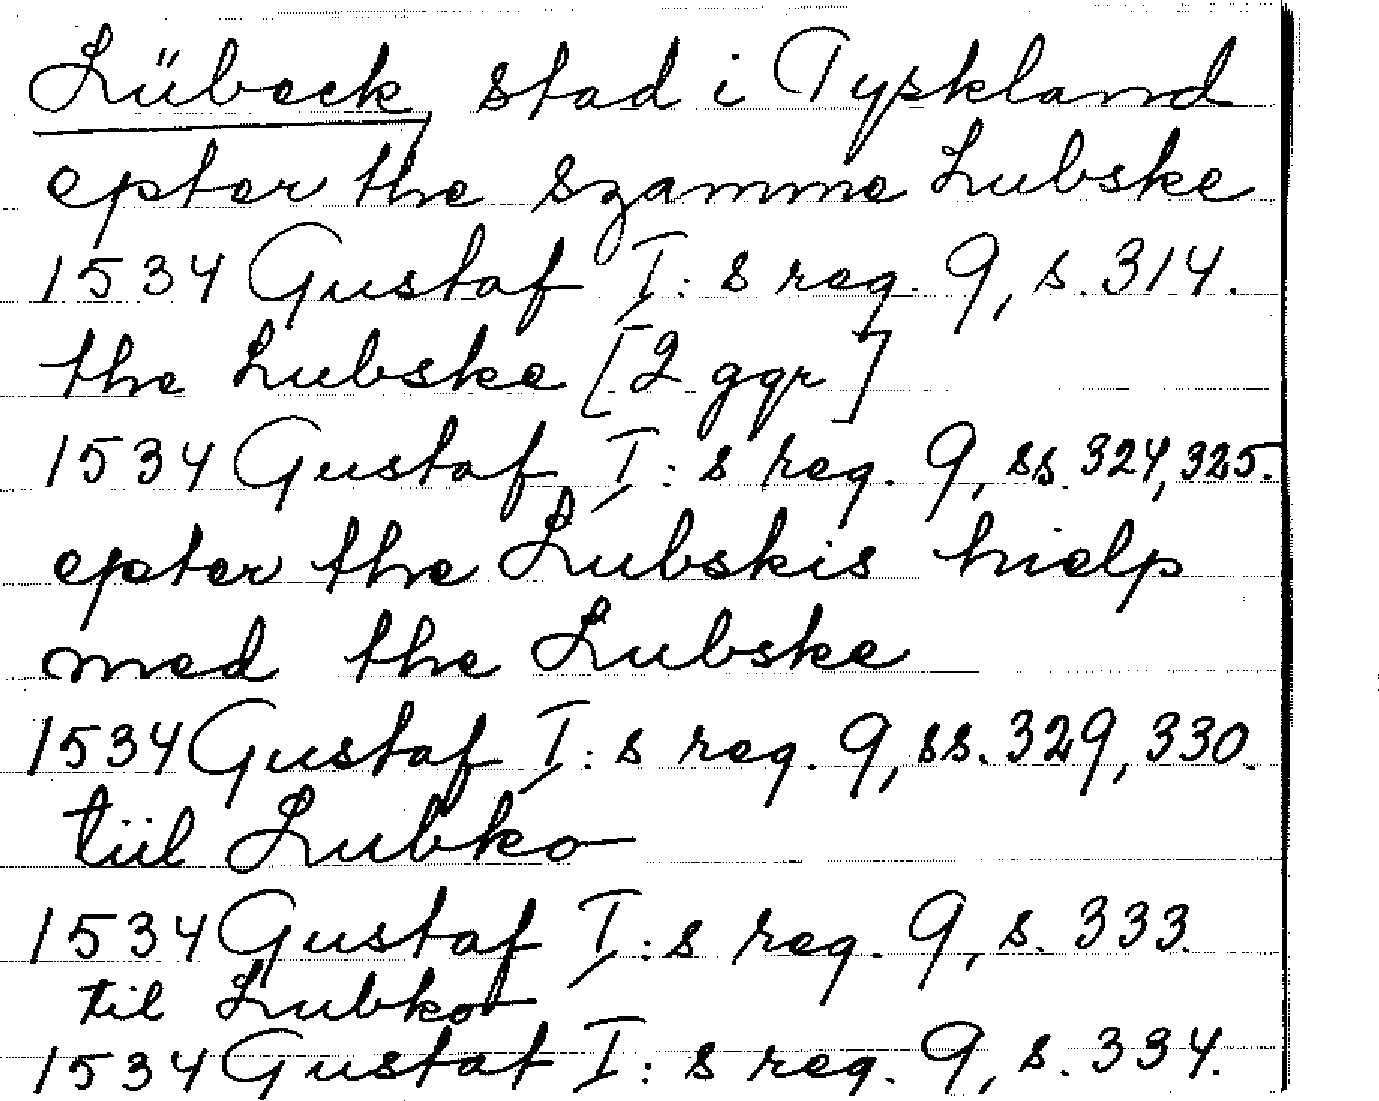 Lübeck, stad i Tyskland
epter the szamme Lubske
1534 Gustaf I:s reg. 9, s. 314.
the Lubske [2 ggr]
1534 Gustaf I:s reg. 9, ss. 324, 325.
epter the Lubskis hielp
med the Lubske
1534 Gustaf I:s reg. 9, ss. 329, 330.
tiil Lubko
1534 Gustaf I:s reg. 9, s. 333.
til Lubko
1534 Gustaf I:s reg. 9, s. 334.